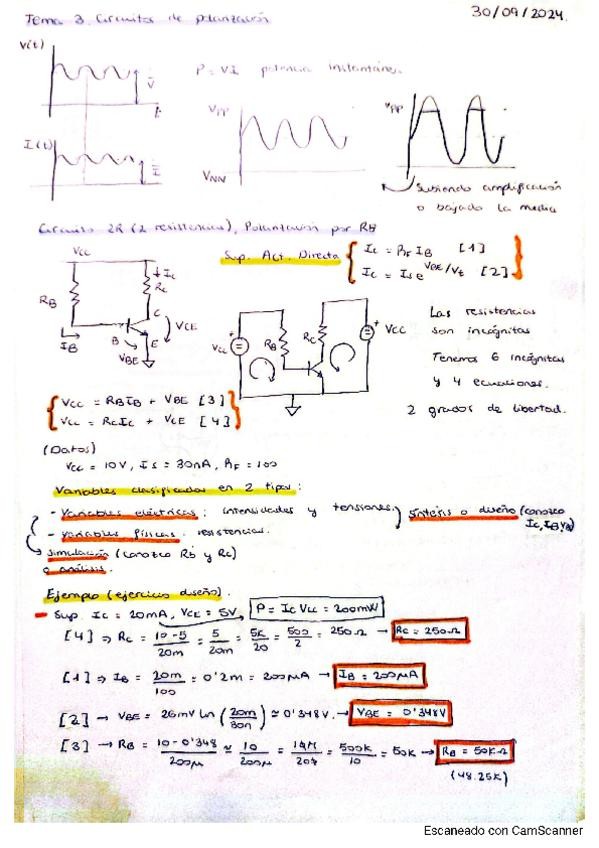 Tema 3. Circuitos de polarización
30/09/2024.
V(t)
P = VI potencia instantánea.
V
t
VPP
VNN
VPP
I(t)
I
Subiendo amplificación
o bajado la media
Circuito 2R (2 resistencias), Polarización por RB
Sup. Act. Directa
IC = βF IB [1]
IC = IS e^VBE/Vt [2]
VCC
IC
RC
RB
C
B
E
VCE
IB
VBE
VCC
RB
RC
VCC
Las resistencias
son incógnitas
Tenemos 6 incógnitas
y 4 ecuaciones.
2 grados de libertad.
VCC = RBIB + VBE [3]
VCC = RCIC + VCE [4]
(Datos)
VCC = 10V, IS = 30nA, βF = 100
Variables clasificadas en 2 tipos:
- Variables eléctricas: intensidades y tensiones.
- Variables físicas: resistencias.
Síntesis o diseño (conozco
IC, IB, VB)
Simulación (conozco RB y RC)
o análisis.
Ejemplo (ejercicio diseño).
- Sup. IC = 20mA, VCE = 5V
P = IC VCC = 200mW
[4] ⇒ RC = 10-5/20m = 5/20m = 5K/20 = 500/2 = 250Ω → RC = 250Ω
[1] ⇒ IB = 20m/100 = 0'2m = 200μA → IB = 200μA
[2] → VBE = 26mV ln (20m/30n) ≃ 0'348V. → VBE = 0'348V
[3] → RB = 10-0'348/200μ ≃ 10/200μ = = 500K/10 = 50K → RB = 50KΩ
(48.25K)
Escaneado con CamScanner